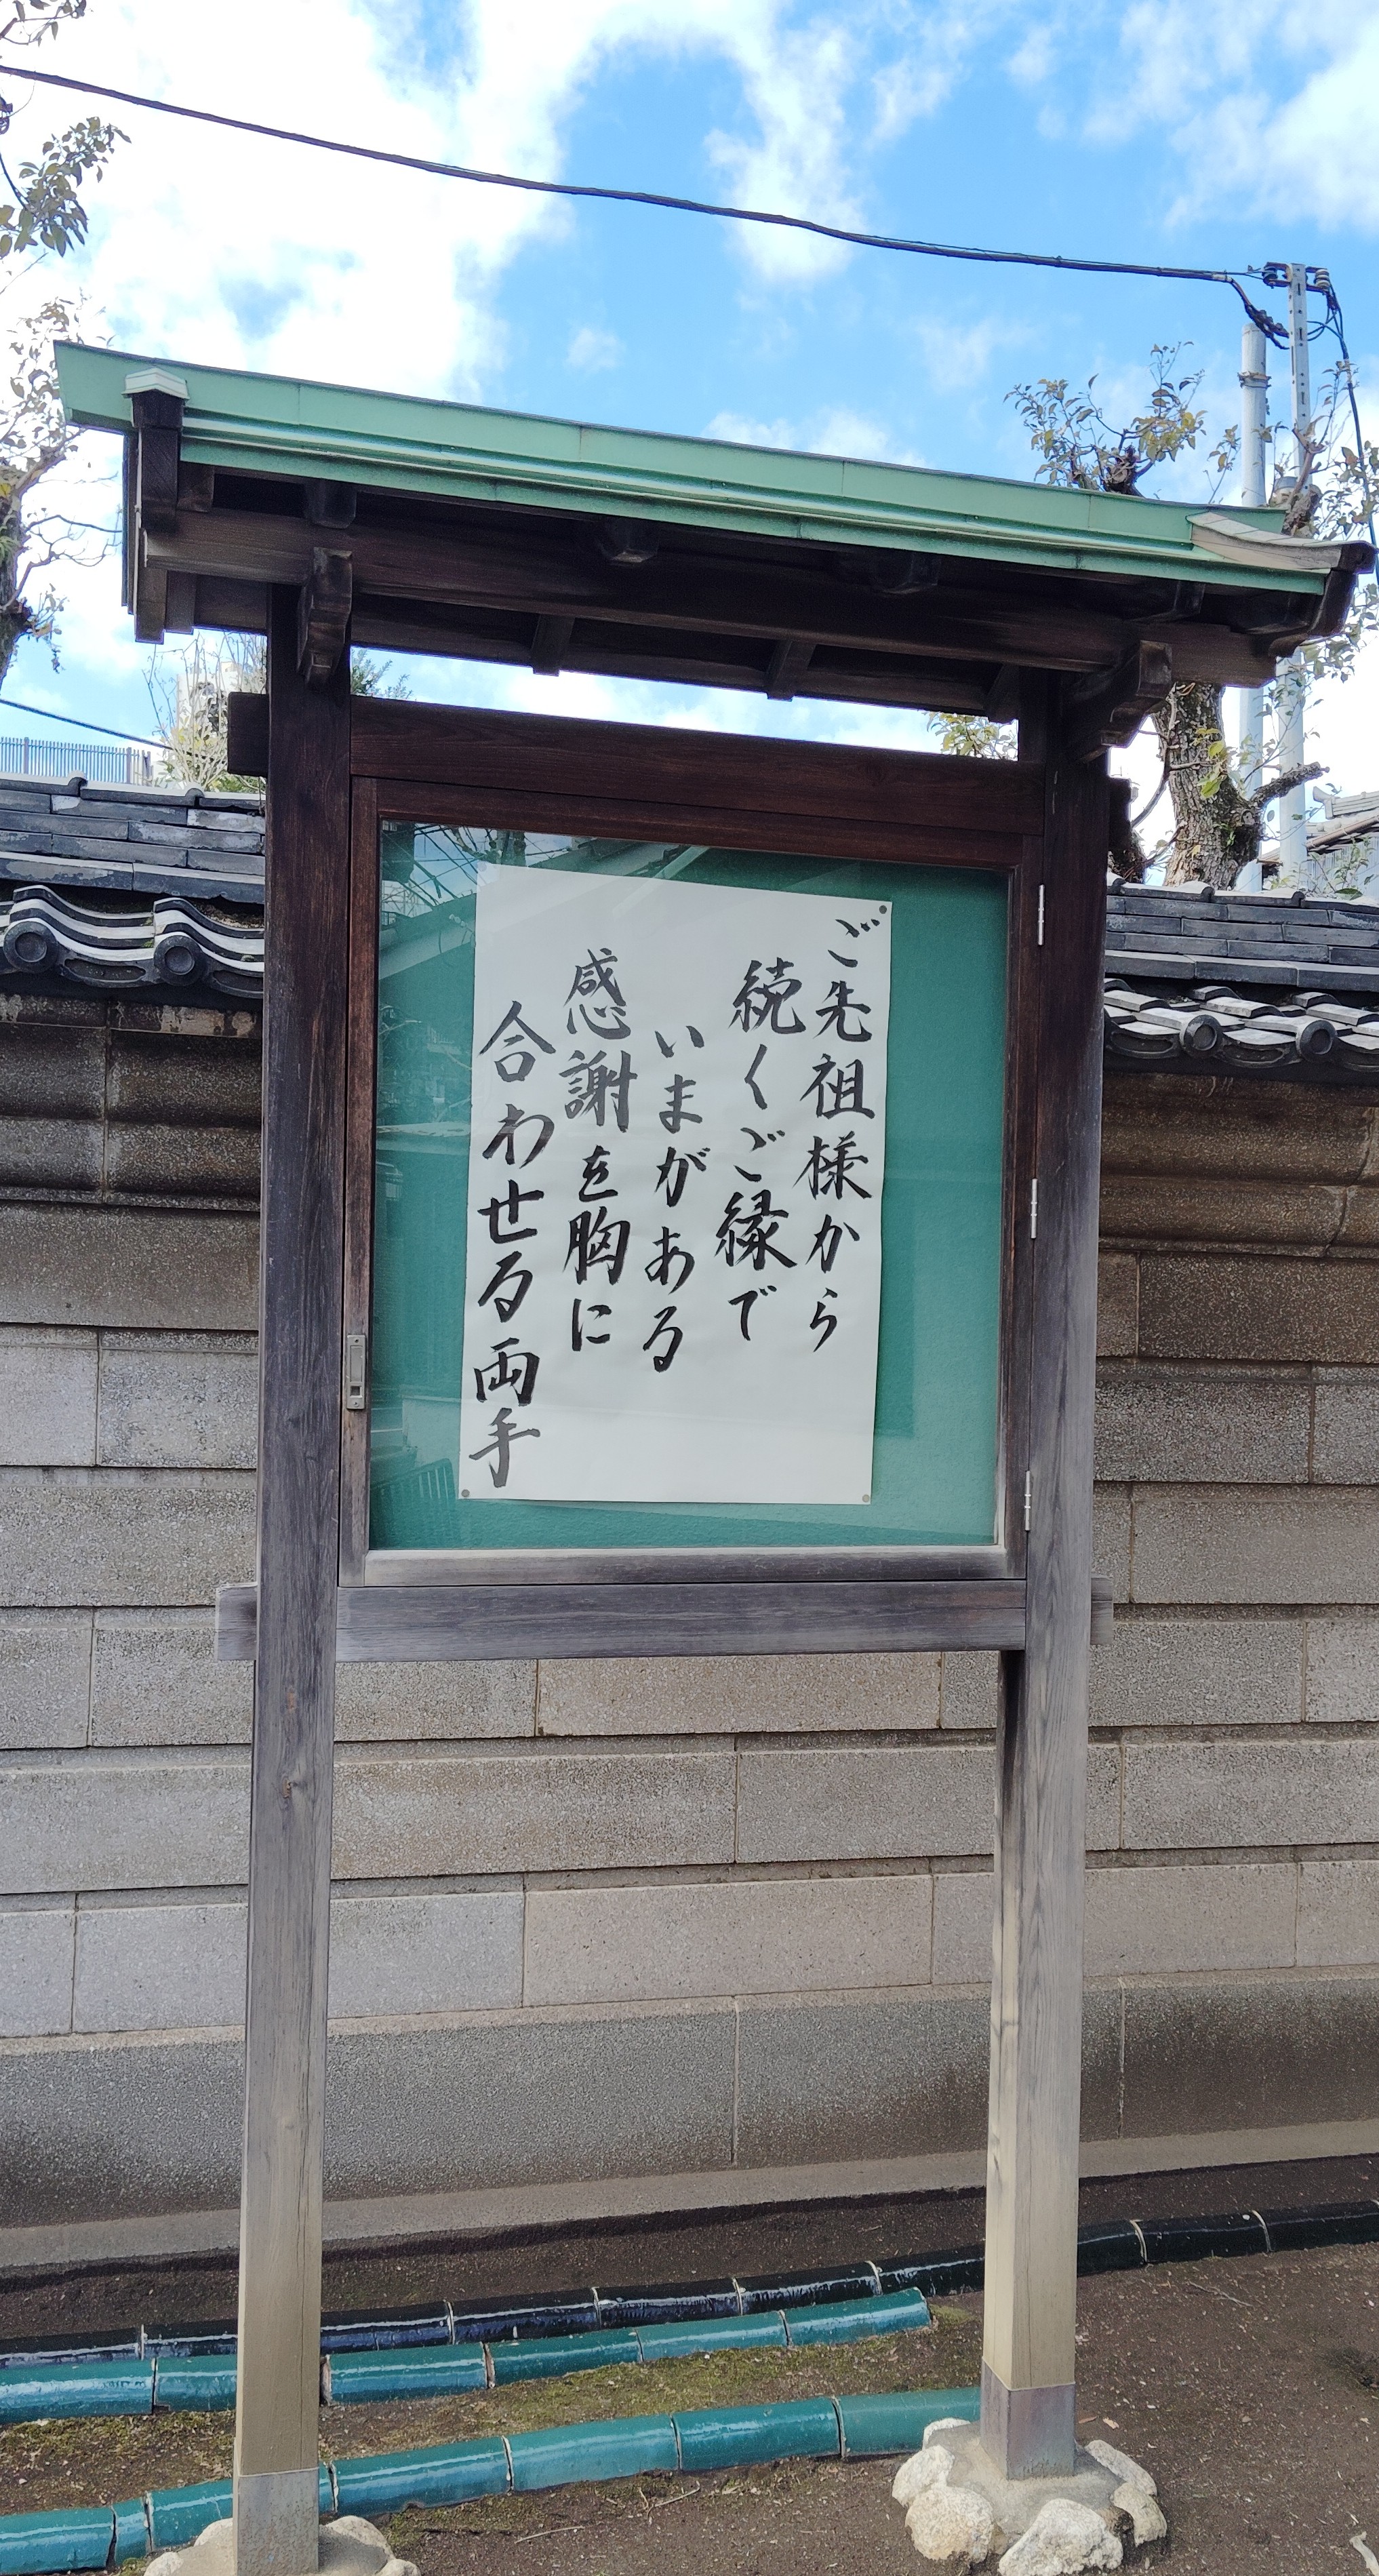 ご先祖様から
続くご縁で
いまがある
感謝を胸に
合わせる両手